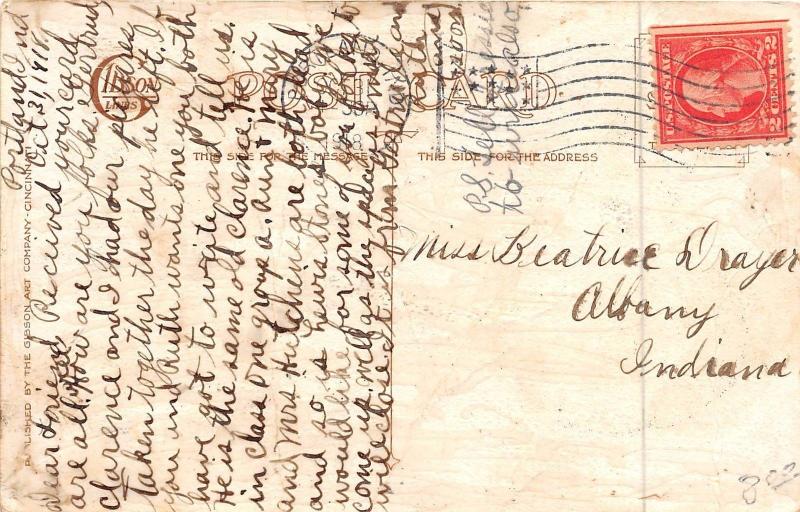 GIBSON
LINES
POST CARD
THIS SIDE FOR THE MESSAGE
THIS SIDE FOR THE ADDRESS
PUBLISHED BY THE GIBSON ART COMPANY-CINCINNATI
U.S. POSTAGE
2 CENTS 2
1918
Portland Ind
Oct 31, 1918
Dear Friend Received your card
are all. How are you folks Gertrude
Clarence and I had our pictures
taken together the day he left. I
you and Ruth wants one you both
have got to write and tell us.
He is the same old Clarence. He is
in class one group a. aunt mary
and Mrs Hutchens are both dead
and so is Lewis Stones
would like for some of you folks to
come up. well as the
will close. It is from Gertrude
P.S. Tell Jessie
to write also.
Miss Beatrice Drayer
Albany
Indiana